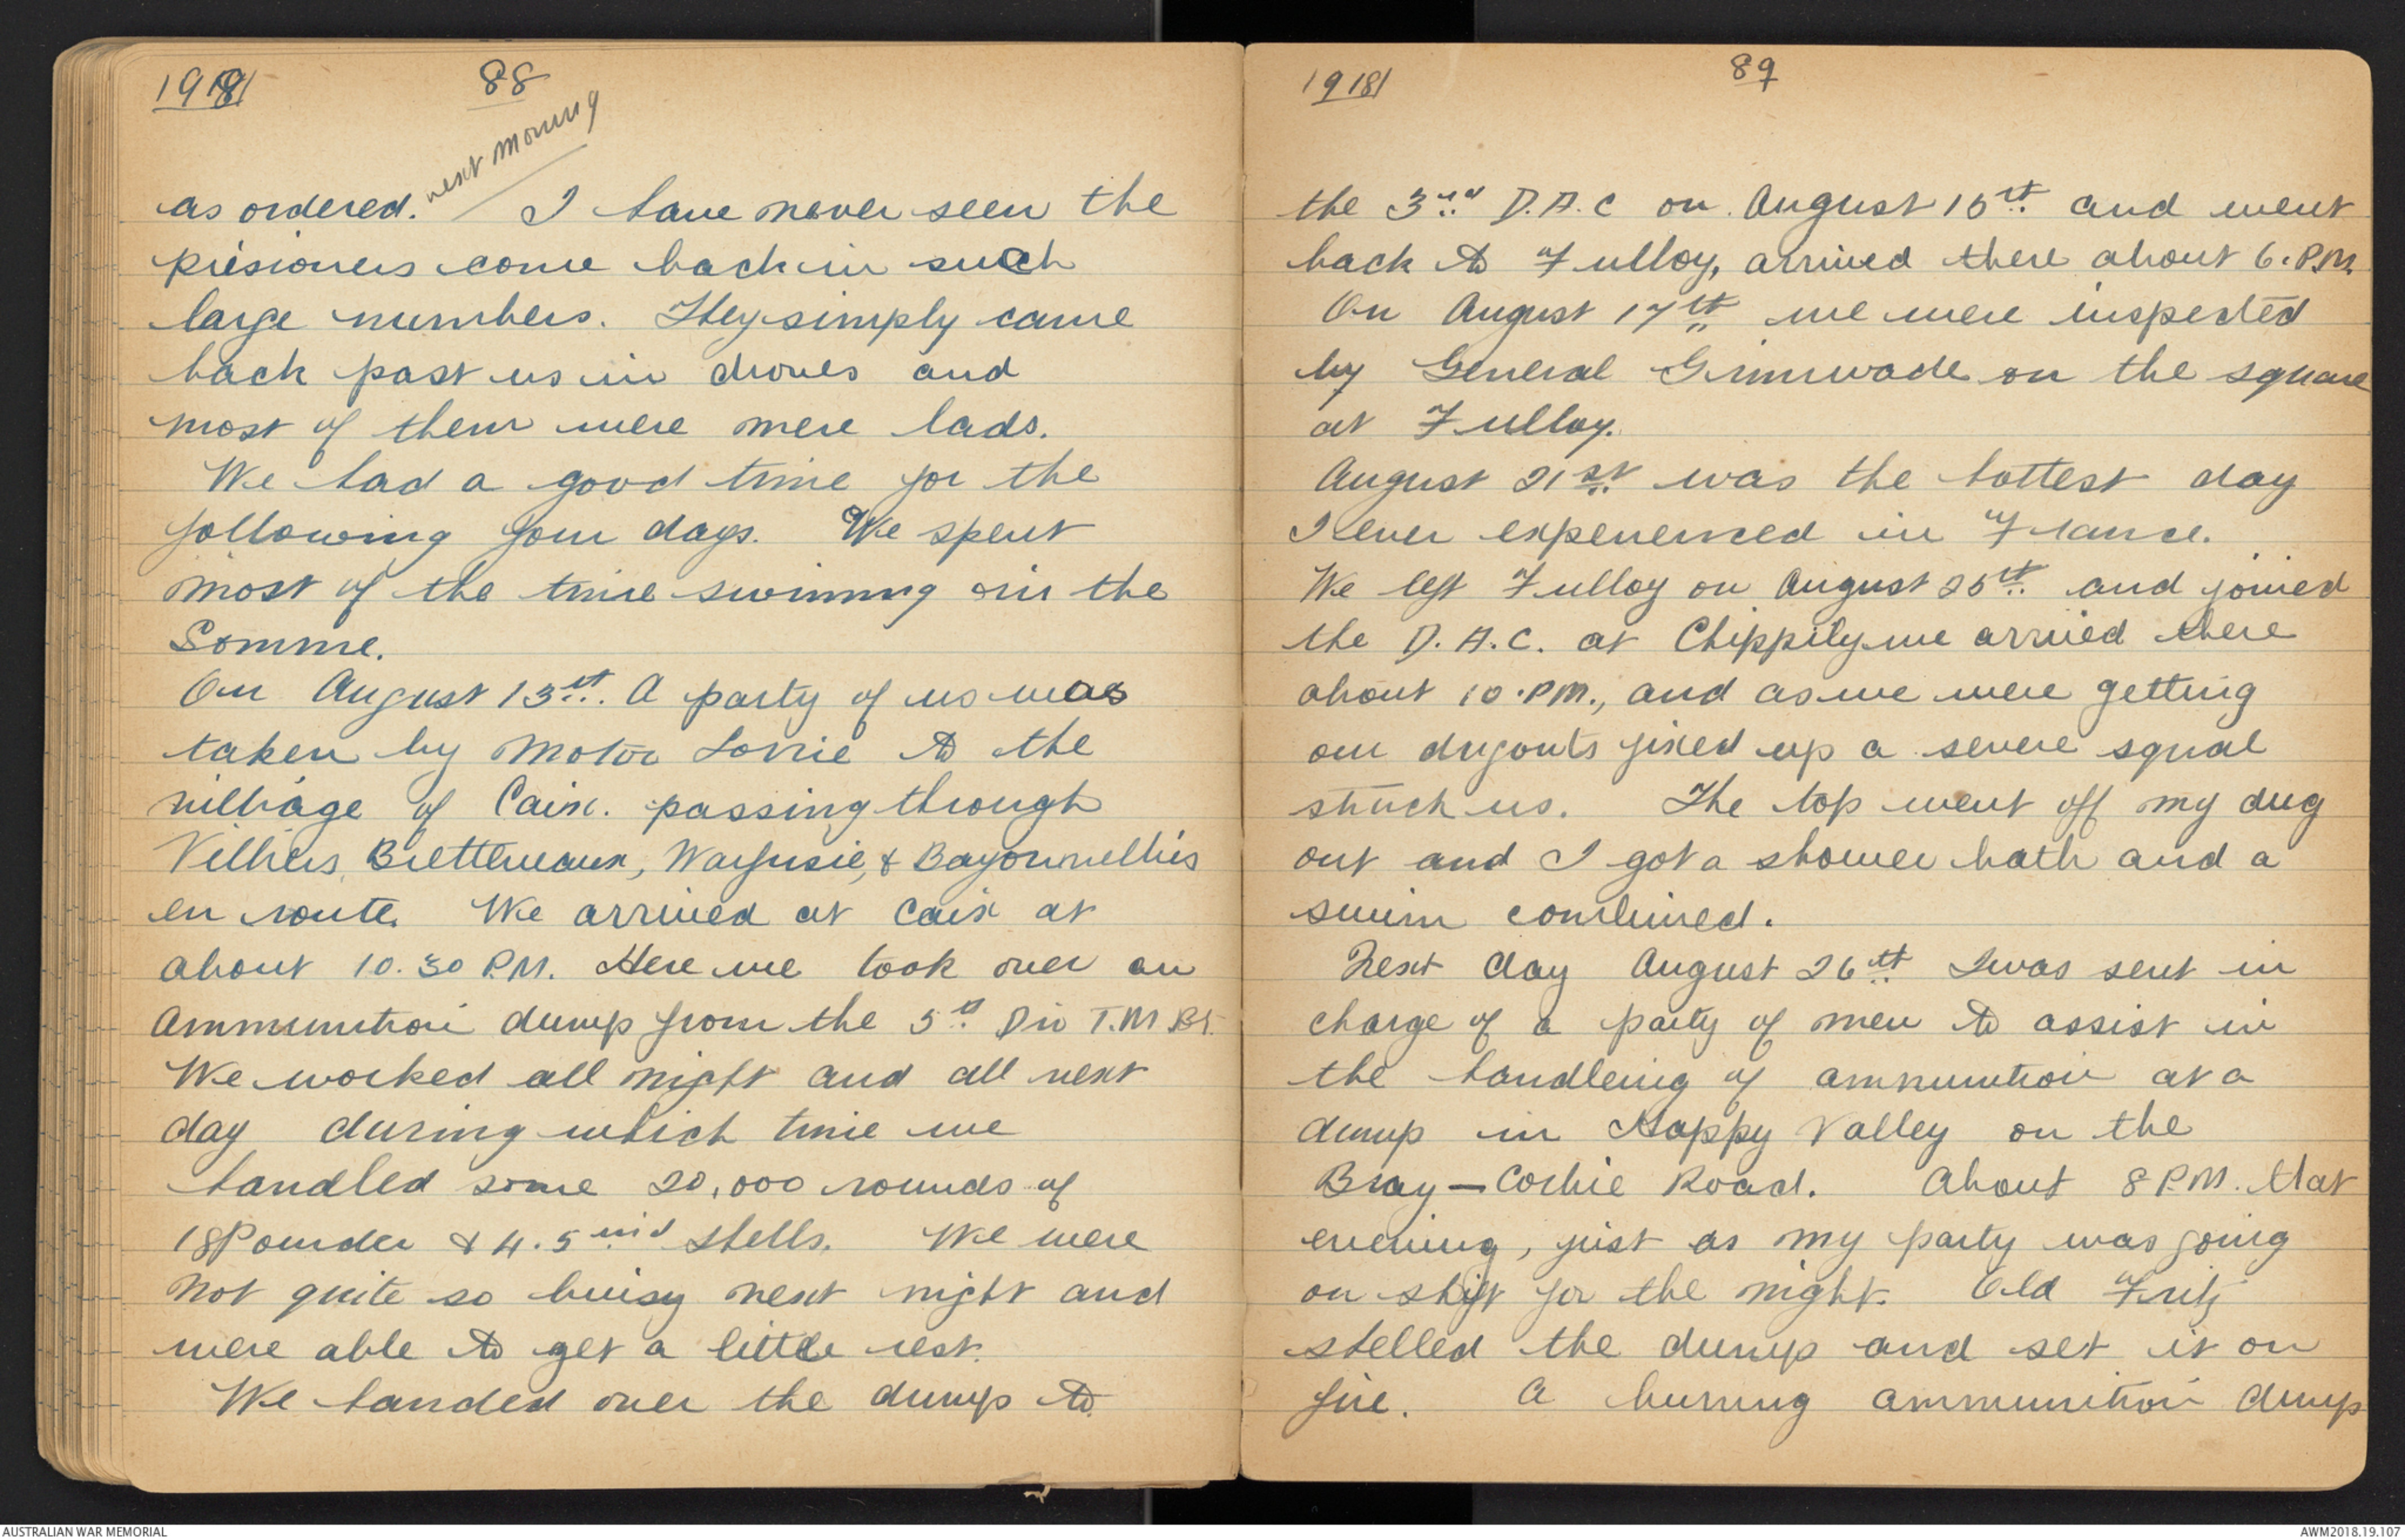 1918
88
next morning
as ordered. I have never seen the
prisioners come back in such
large numbers. They simply came
back past us in droves and
most of them were mere lads.
We had a good time for the
following four days. We spent
most of the time swimmng in the
Somme.
On August 13th. A party of us was
taken by Motor Lorrie to the
village of Caix. passing through
Villiers Bretteneaux, Warfusie, & Bayonvillies
en route. We arrived at Caix at
about 10.30 P.M. Here we took over an
Ammunition dump from the 5th Div T.M. Bt.
We worked all night and all next
day during which time we
handled some 20,000 rounds of
18 Pounder & 4.5 in's shells. We were
not quite so buisy next night and
were able to get a little rest.
We handed over the dump to
1918
89
the 3rd D.A.C on August 15th and went
back to Fulloy, arrived there about 6.P.M.
On August 17th we were inspected
by General Grimwade on the square
at Fulloy.
August 21st was the hottest day
I ever experienced in France.
We left Fulloy on August 25th and joined
the D.A.C. at Chippily we arrived there
about 10.PM., and as we were getting
our dugouts fixed up a severe squal
struck us. The top went off my dug
out and I got a shower bath and a
swim combined.
Next day August 26th I was sent in
charge of a party of men to assist in
the handleing of ammunition at a
dump in Happy Valley on the
Bray - Corbie Road. About 8 P.M. that
evening, just as my party was going
on shift for the night. Old Fritz
shelled the dump and set it on
fire. A burning ammunition dump
AUSTRALIAN WAR MEMORIAL
AWM2018.19.107